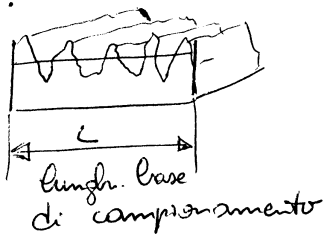 L
lungh. base
di campionamento